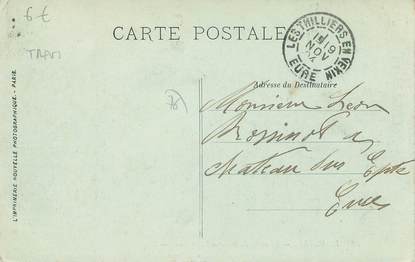 6€
TRAM
CARTE POSTALE
LES THILLIERS-EN-VEXIN
NOV
EURE
Adresse du Destinataire
Monsieur Léon
Château sur Epte
Eure
L'IMPRIMERIE NOUVELLE PHOTOGRAPHIQUE. - PARIS.